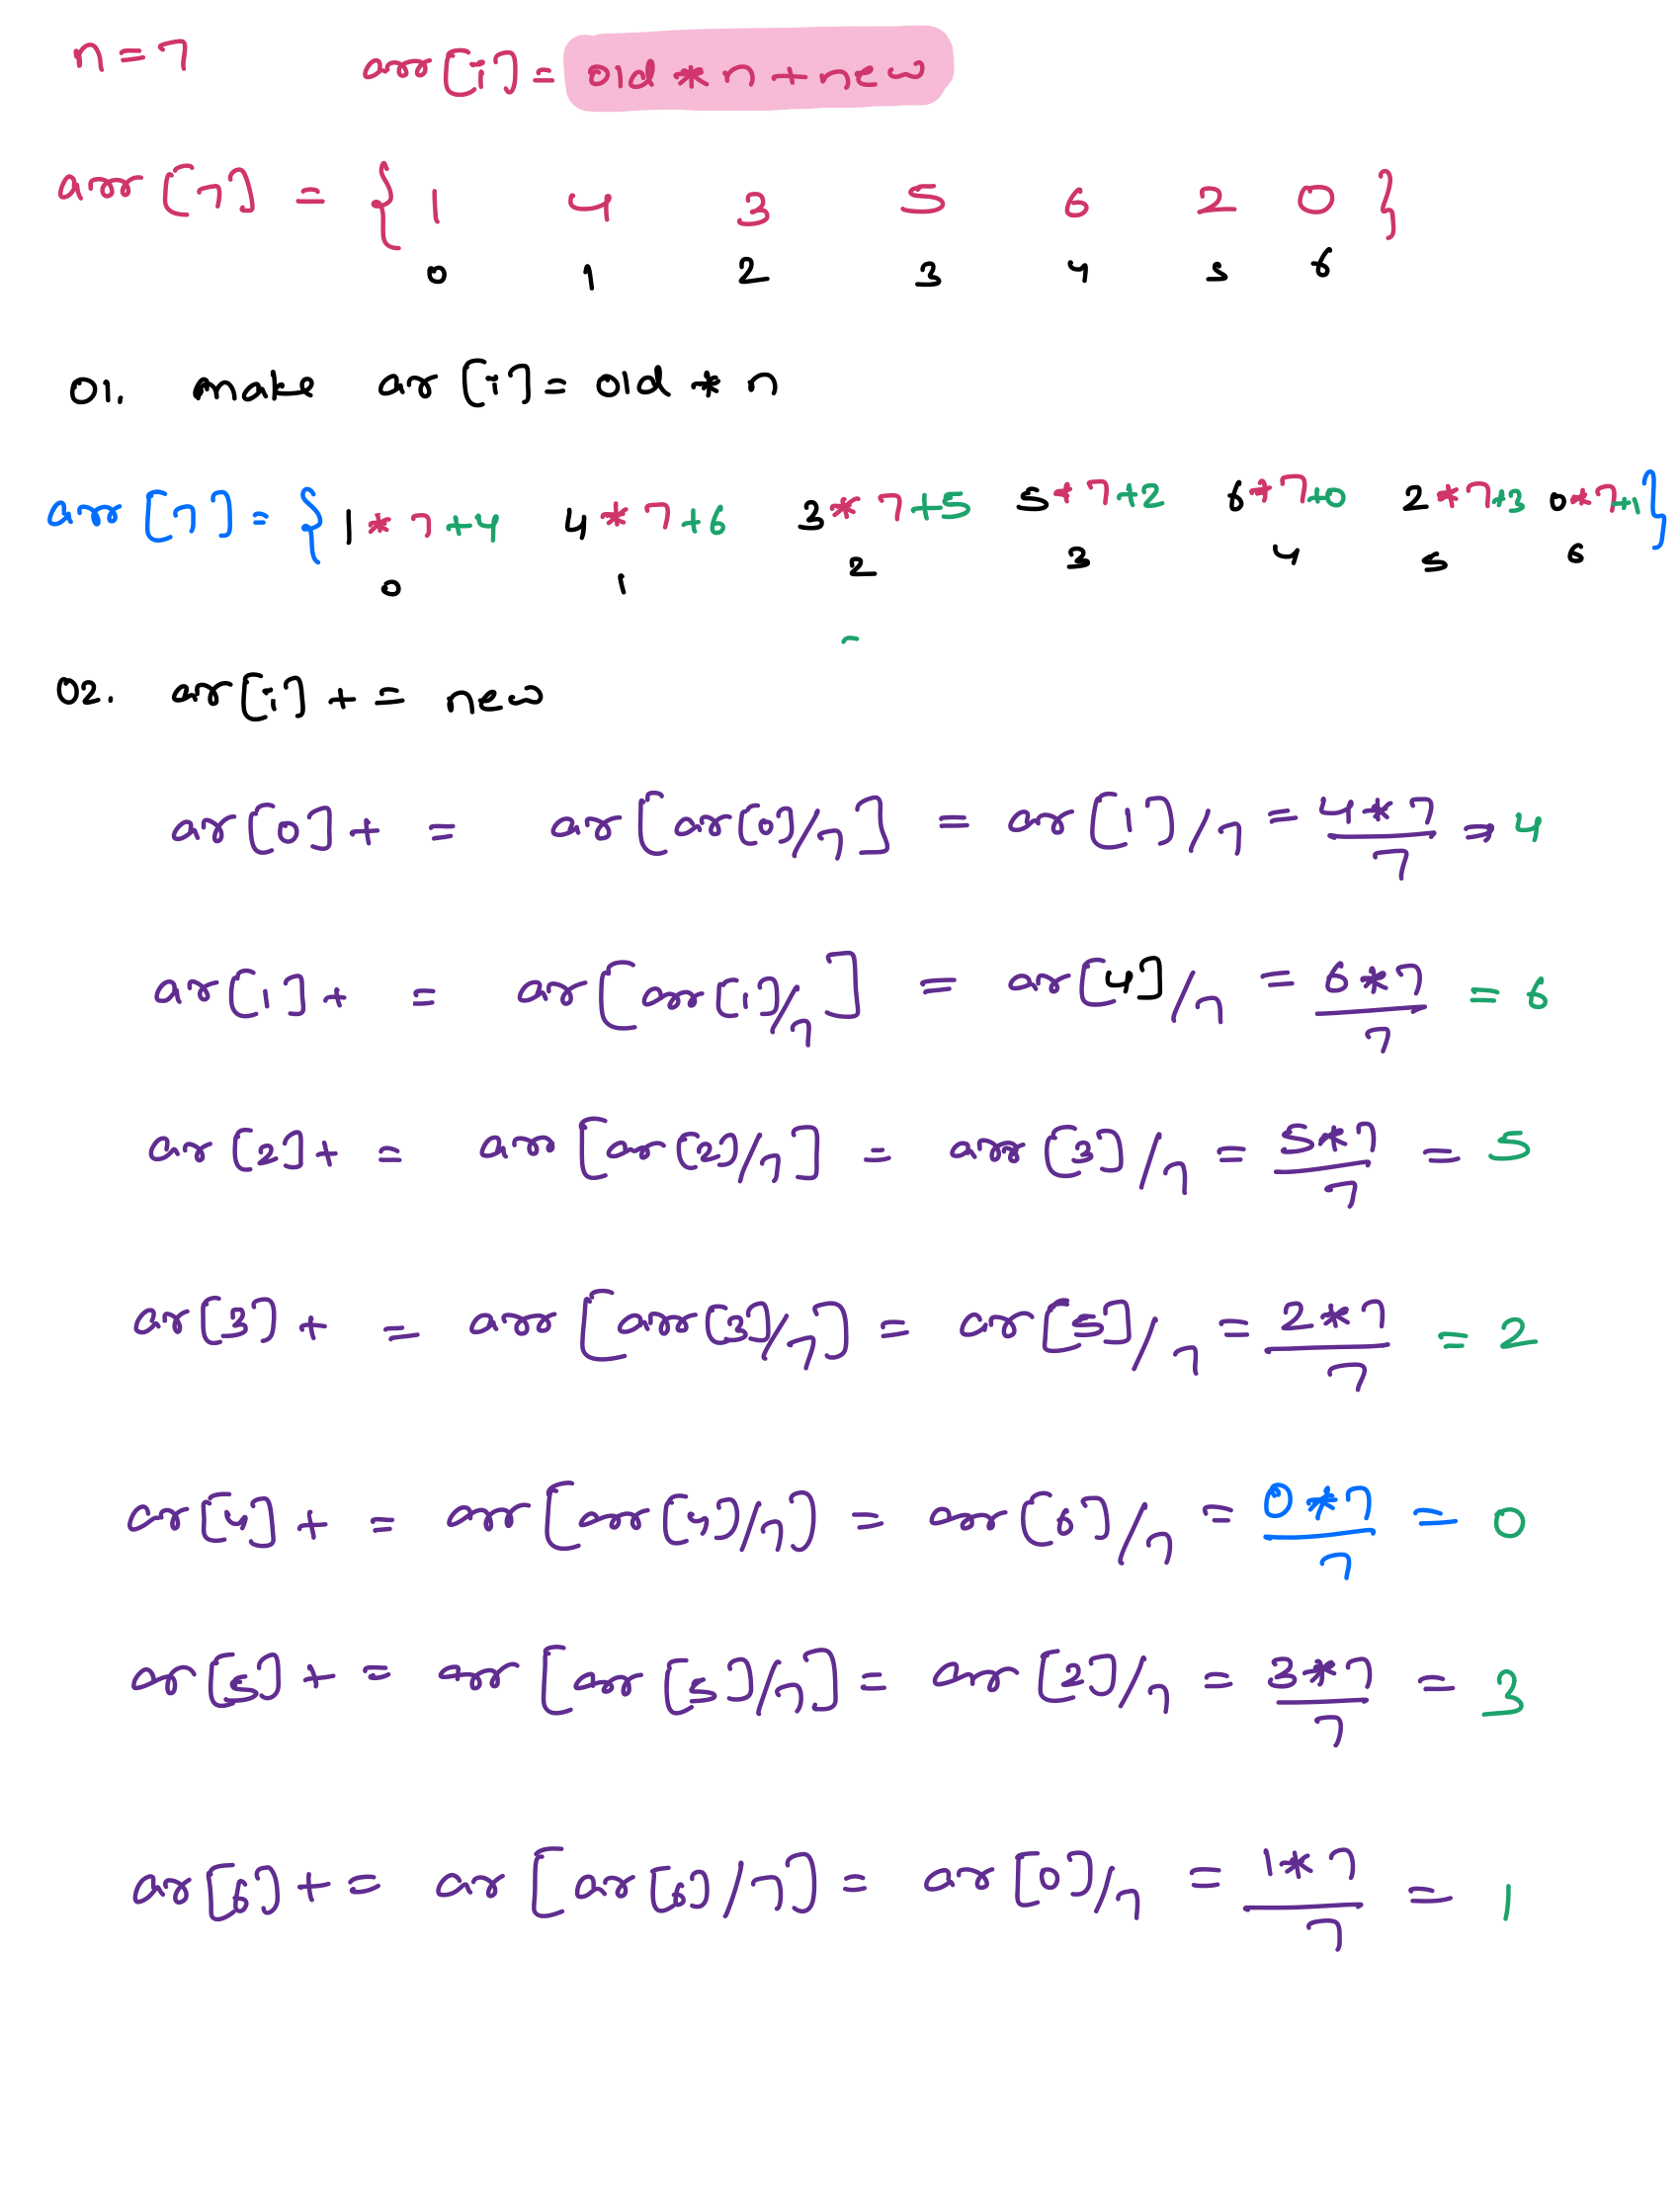 n=7 arr[i]= old * n + new
arr[7] = { 1 4 3 5 6 2 0 }
0 1 2 3 4 5 6
01. make ar[i]= old * n
arr[7]= { 1*7+4 4*7+6 3*7+5 5*7+2 6*7+0 2*7+3 0*7+1 }
0 1 2 3 4 5 6
02. ar[i] += new
ar[0]+ = ar[ar[0]/7] = ar[1]/7 = 4*7/7 => 4
ar[1]+ = ar[arr[1]/7] = ar[4]/7 = 6*7/7 = 6
ar[2]+ = arr[arr[2]/7] = arr[3]/7 = 5*7/7 = 5
ar[3]+ = arr[arr[3]/7] = ar[5]/7 = 2*7/7 = 2
ar[4]+ = arr[arr[4]/7] = arr[6]/7 = 0*7/7 = 0
ar[5]+ = arr[arr[5]/7] = arr[2]/7 = 3*7/7 = 3
ar[6]+= ar[ar[6]/7] = ar[0]/7 = 1*7/7 = 1